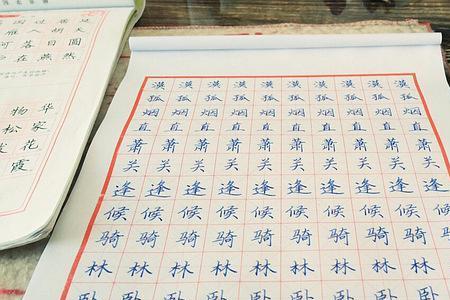 国过居延
雁入胡天
落日圆
在燕然
物华
松家
花
霞
漠漠漠漠漠漠漠漠漠
孤孤孤孤孤孤孤孤孤
烟烟烟烟烟烟烟烟烟
直直直直直直直直直
萧萧萧萧萧萧萧萧萧
关关关关关关关关关
逢逢逢逢逢逢逢逢逢
候候候候候候候候候
骑骑骑骑骑骑骑骑骑
林林林林林林林林
卧卧卧卧卧卧卧卧